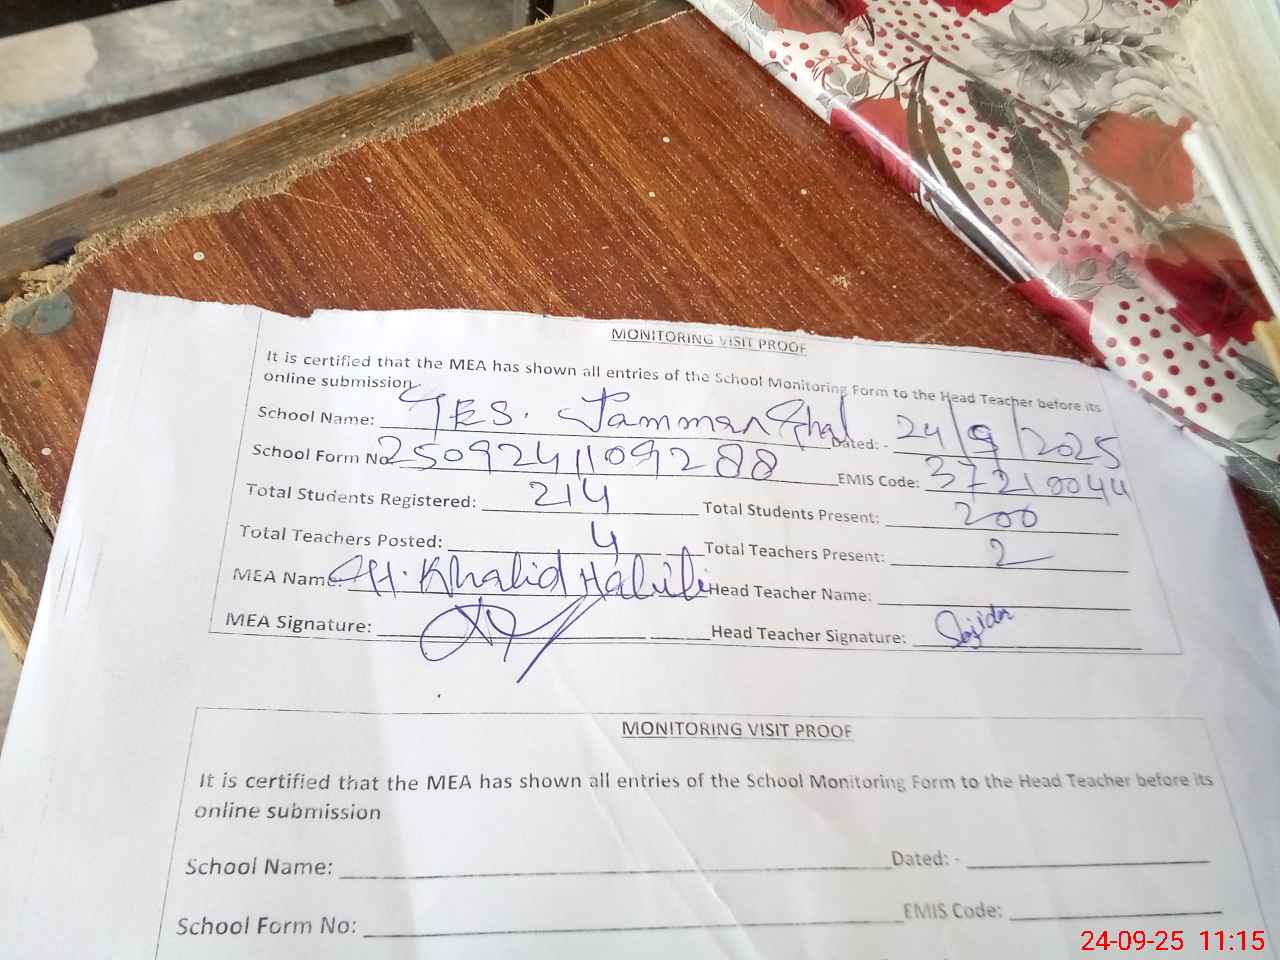 MONITORING VISIT PROOF
It is certified that the MEA has shown all entries of the School Monitoring Form to the Head Teacher before its
online submission
School Name: GES. Jamman Ghal Dated: - 24/9/2025
School Form No 2509241109288 EMIS Code: 37210044
Total Students Registered: 214 Total Students Present: 200
Total Teachers Posted: 4 Total Teachers Present: 2
MEA Name: Khalid Habib Head Teacher Name:
MEA Signature: Head Teacher Signature: Sajida
MONITORING VISIT PROOF
It is certified that the MEA has shown all entries of the School Monitoring Form to the Head Teacher before its
online submission
School Name: Dated: -
School Form No: EMIS Code:
24-09-25 11:15